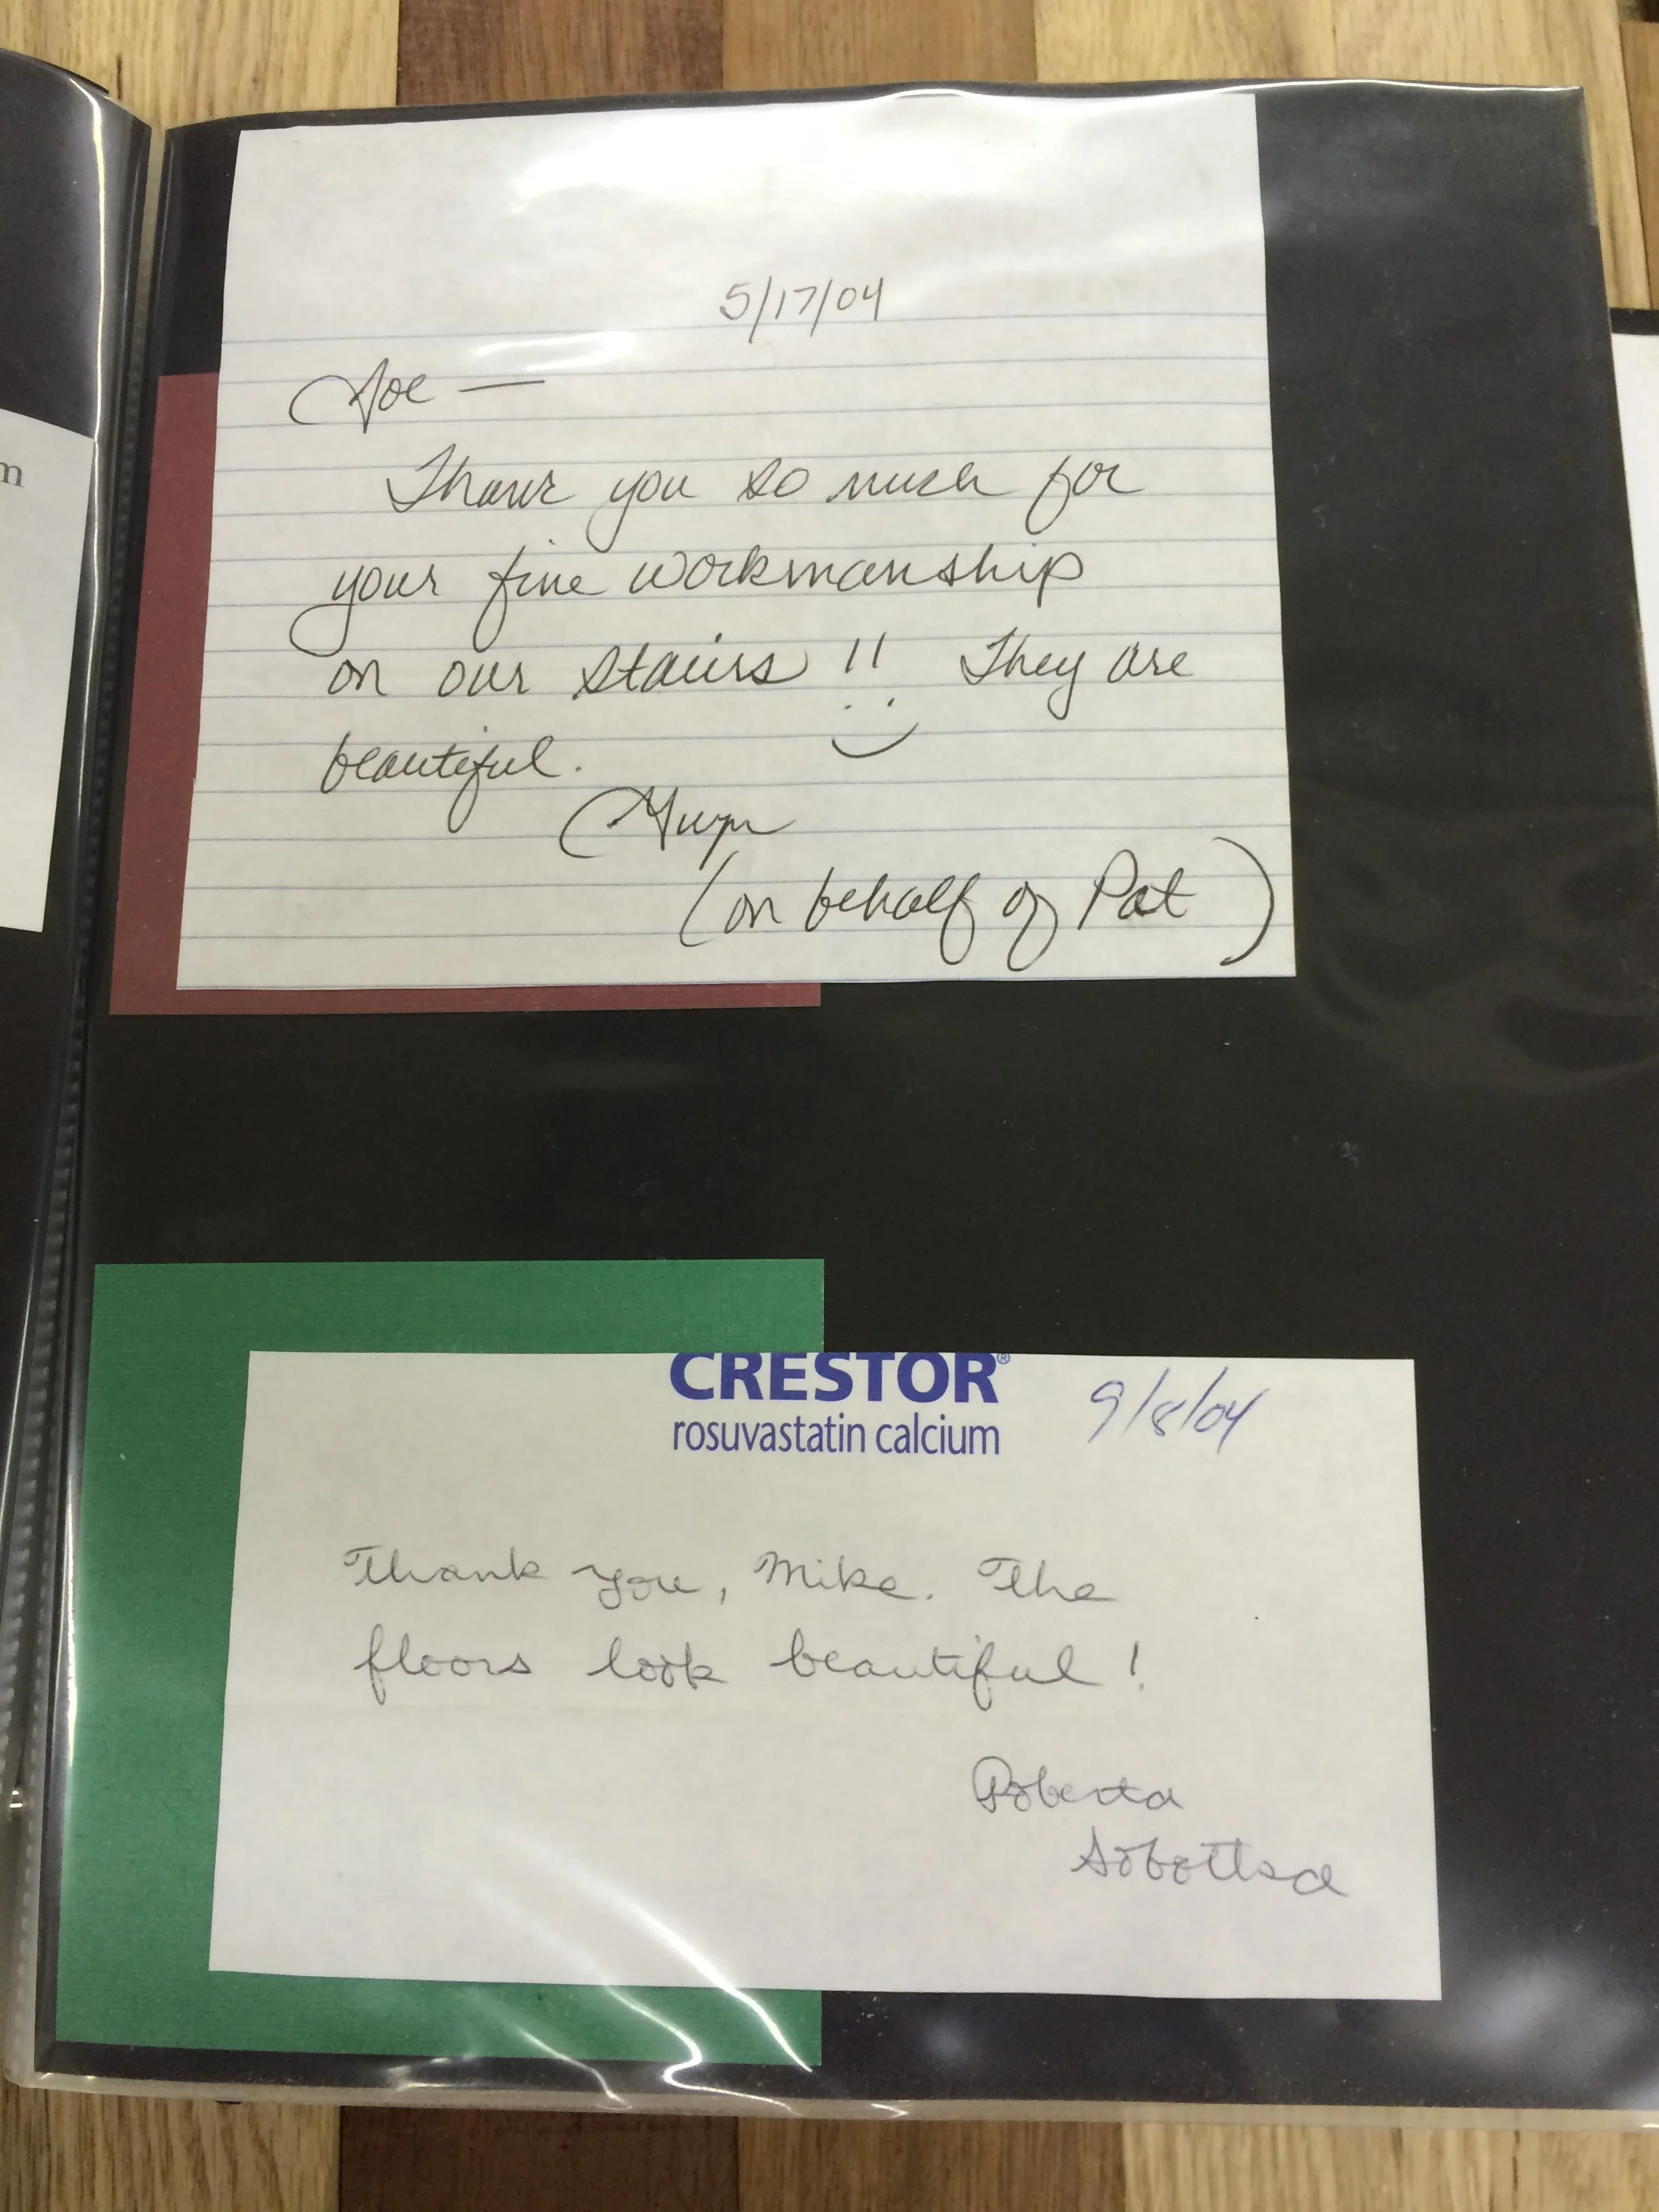 m
5/17/04
Joe —
Thank you so much for
your fine workmanship
on our stairs !! They are
beautiful.
Gwyn
(on behalf of Pat)
CRESTOR®
rosuvastatin calcium
9/8/04
Thank you, Mike. The
floors look beautiful!
Roberta